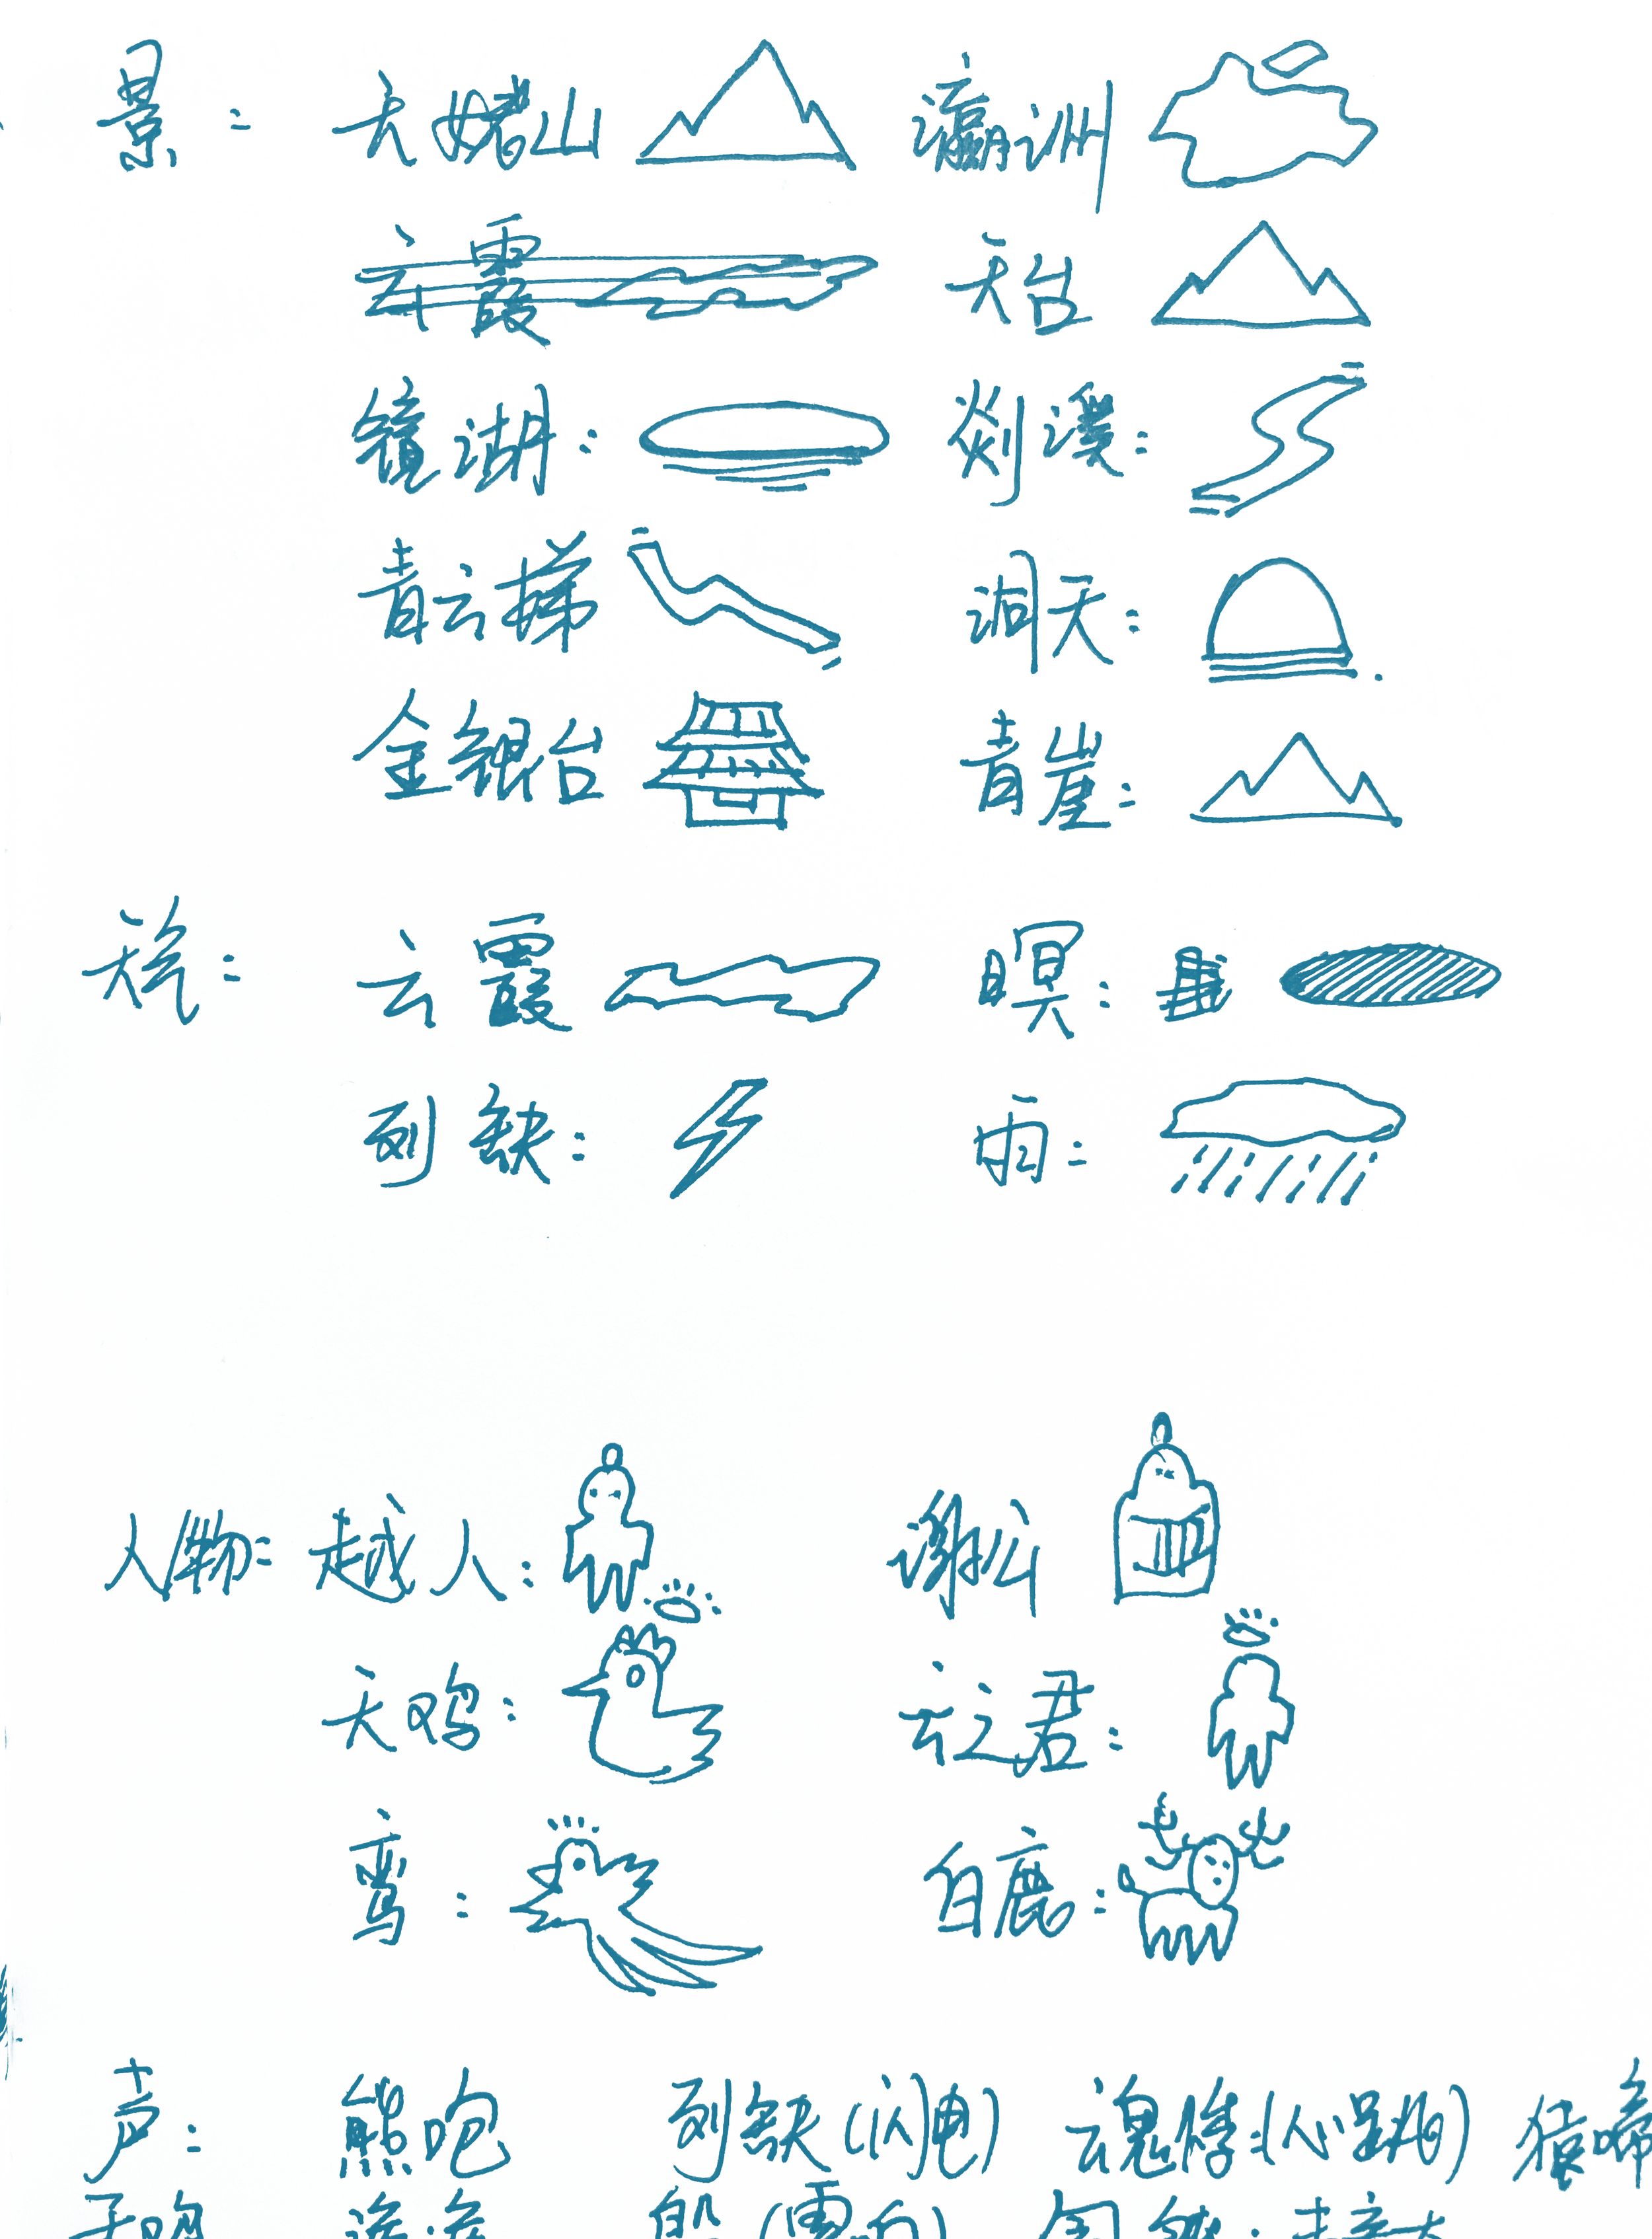 景: 天姥山 瀛洲
云霞 天台
镜湖: 剡溪:
青云梯 洞天:
金银台 青崖:
天气: 云霞 暝:
列缺: 雨:
人物: 越人: 谢公
天鸡: 云之君:
鸾: 白鹿:
声: 熊咆 列缺(闪电) 魂悸:(心跳) 猿啼
天鸡